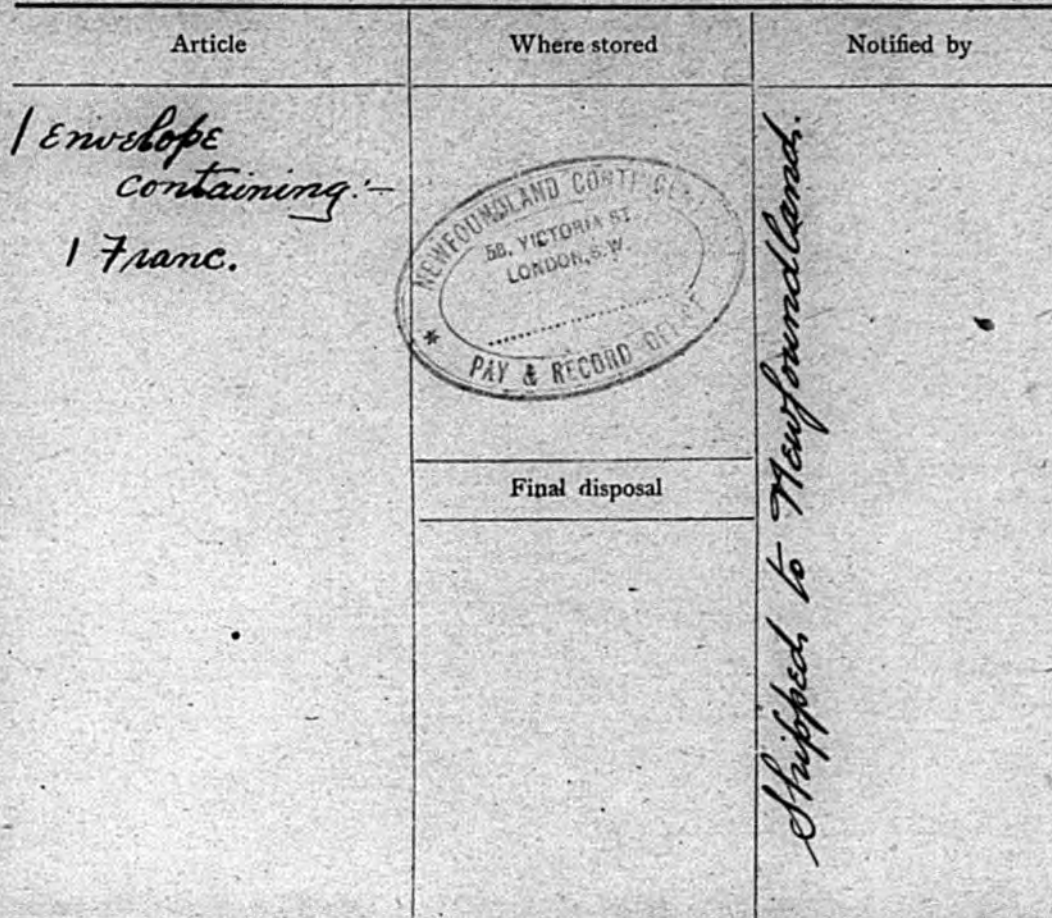 Article
Where stored
Notified by
1 Envelope
containing:-
1 Franc.
NEWFOUNDLAND CONTINGENT
58, VICTORIA ST.
LONDON, S.W.
* PAY & RECORD OFFICE
Final disposal
Shipped to Newfoundland.